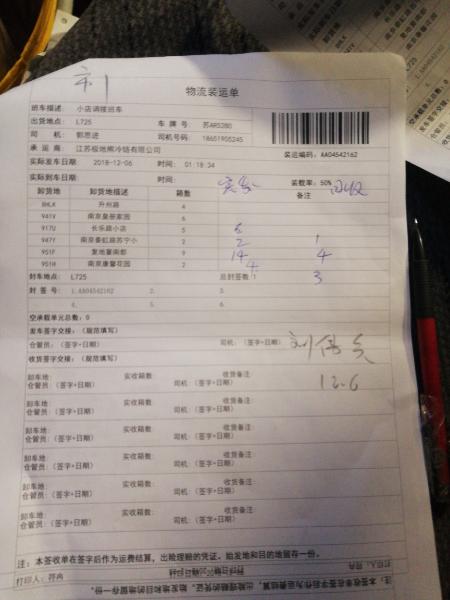 刘
物流装运单
班车描述: 小店调拨班车
出货地点: L725 车 牌 号: 苏AR5280
司 机: 郭思进 司机号码: 18651905245
承 运 商: 江苏极地熊冷链有限公司 装运编码: AA04542162
实际发车日期: 2018-12-06 时间: 01:18:34
实际到车日期: 时间: 实发 装载率: 50% 回收
卸货地 卸货地描述 箱数 备注
8HLX 升州路 4
941V 南京皇册家园 6
917U 长乐路小店 5 6
947Y 南京秦虹路苏宁小 2 2 1
951F 复地宴南都 9 14 4
951H 南京康馨花园 2 4 3
封车地点: L725 总封签数: 1
封 签 号: 1.AA04542162 2. 3.
4. 5. 6.
空承载单元总数: 0
发车签字交接: (规范填写)
仓管员: (签字+日期) 司机: (签字+日期)
收货签字交接: (规范填写)
12.6
卸车地: 实收箱数: 收货备注:
仓管员: (签字+日期) 司机: (签字+日期)
卸车地: 实收箱数: 收货备注:
仓管员: (签字+日期) 司机: (签字+日期)
卸车地: 实收箱数: 收货备注:
仓管员: (签字+日期) 司机: (签字+日期)
卸车地: 实收箱数: 收货备注:
仓管员: (签字+日期) 司机: (签字+日期)
卸车地: 实收箱数: 收货备注:
仓管员: (签字+日期) 司机: (签字+日期)
卸车地: 实收箱数: 收货备注:
仓管员: (签字+日期) 司机: (签字+日期)
注: 本签收单在签字后作为运费结算、出险理赔的凭证。始发地和目的地留存一份。
打印人: 符冉